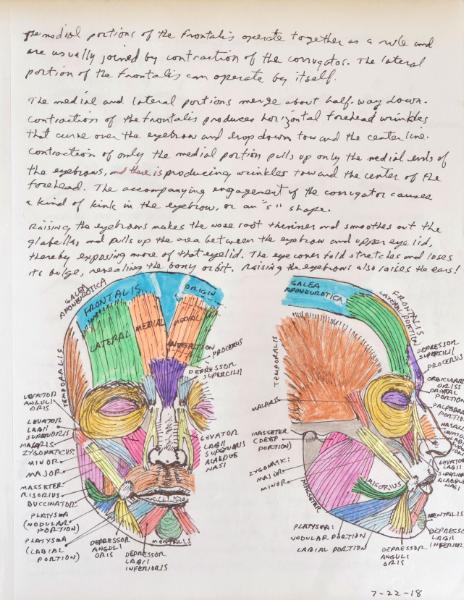 The medial portions of the frontalis operate together as a rule and
are usually joined by contraction of the corrugator. The lateral
portion of the frontalis can operate by itself.
The medial and lateral portions merge about half-way down.
Contraction of the frontalis produces horizontal forehead wrinkles
that curve over the eyebrow and drop down toward the center line.
Contraction of only the medial portion pulls up only the medial ends of
the eyebrows, producing wrinkles toward the center of the
forehead. The accompanying engagement of the corrugator causes
a kind of kink in the eyebrow, or an "s" shape.
Raising the eyebrows makes the nose root thinner and smoothes out the
glabella and pulls up the area between the eyebrow and upper eyelid,
thereby exposing more of that eyelid. The eye cover fold stretches and loses
its bulge, revealing the bony orbit. Raising the eyebrows also raises the ears!
GALEA
APONEUROTICA
FRONTALIS
ORIGIN
LATERAL
MEDIAL
MEDIAL
INSERTION
PROCERUS
DEPRESSOR
SUPERCILII
TEMPORALIS
LEVATOR
ANGULI
ORIS
LEVATOR
LABII
SUPERIORIS
MALARIS
ZYGOMATICUS
MINOR
MAJOR
MASSETER
RISORIUS
BUCCINATOR
PLATYSMA
(MODULAR
PORTION)
PLATYSMA
(LABIAL
PORTION)
DEPRESSOR
ANGULI
ORIS
DEPRESSOR
LABII
INFERIORIS
MENTALIS
LEVATOR
LABII
SUPERIORIS
ALAEQUE
NASI
GALEA
APONEUROTICA
FRONTALIS
LATERAL PORTION
TEMPORALIS
DEPRESSOR
SUPERCILII
PROCERUS
ORBICULARIS
ORIS
ORBITAL
PORTION
PALPEBRAL
PORTION
NASALIS
MALARIS
MASSETER
(DEEP
PORTION)
ZYGOMATIC:
MAJOR
MINOR
MASSETER
RISORIUS
LEVATOR
LABII
SUPERIORIS
ALAEQUE
NASI
MENTALIS
DEPRESSOR
LABII
INFERIORIS
PLATYSMA:
MODULAR PORTION
LABIAL PORTION
DEPRESSOR
ANGULI
ORIS
7-22-18